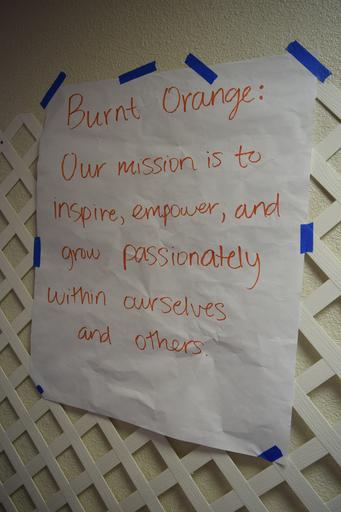 Burnt Orange:
Our mission is to
inspire, empower, and
grow passionately
within ourselves
and others.